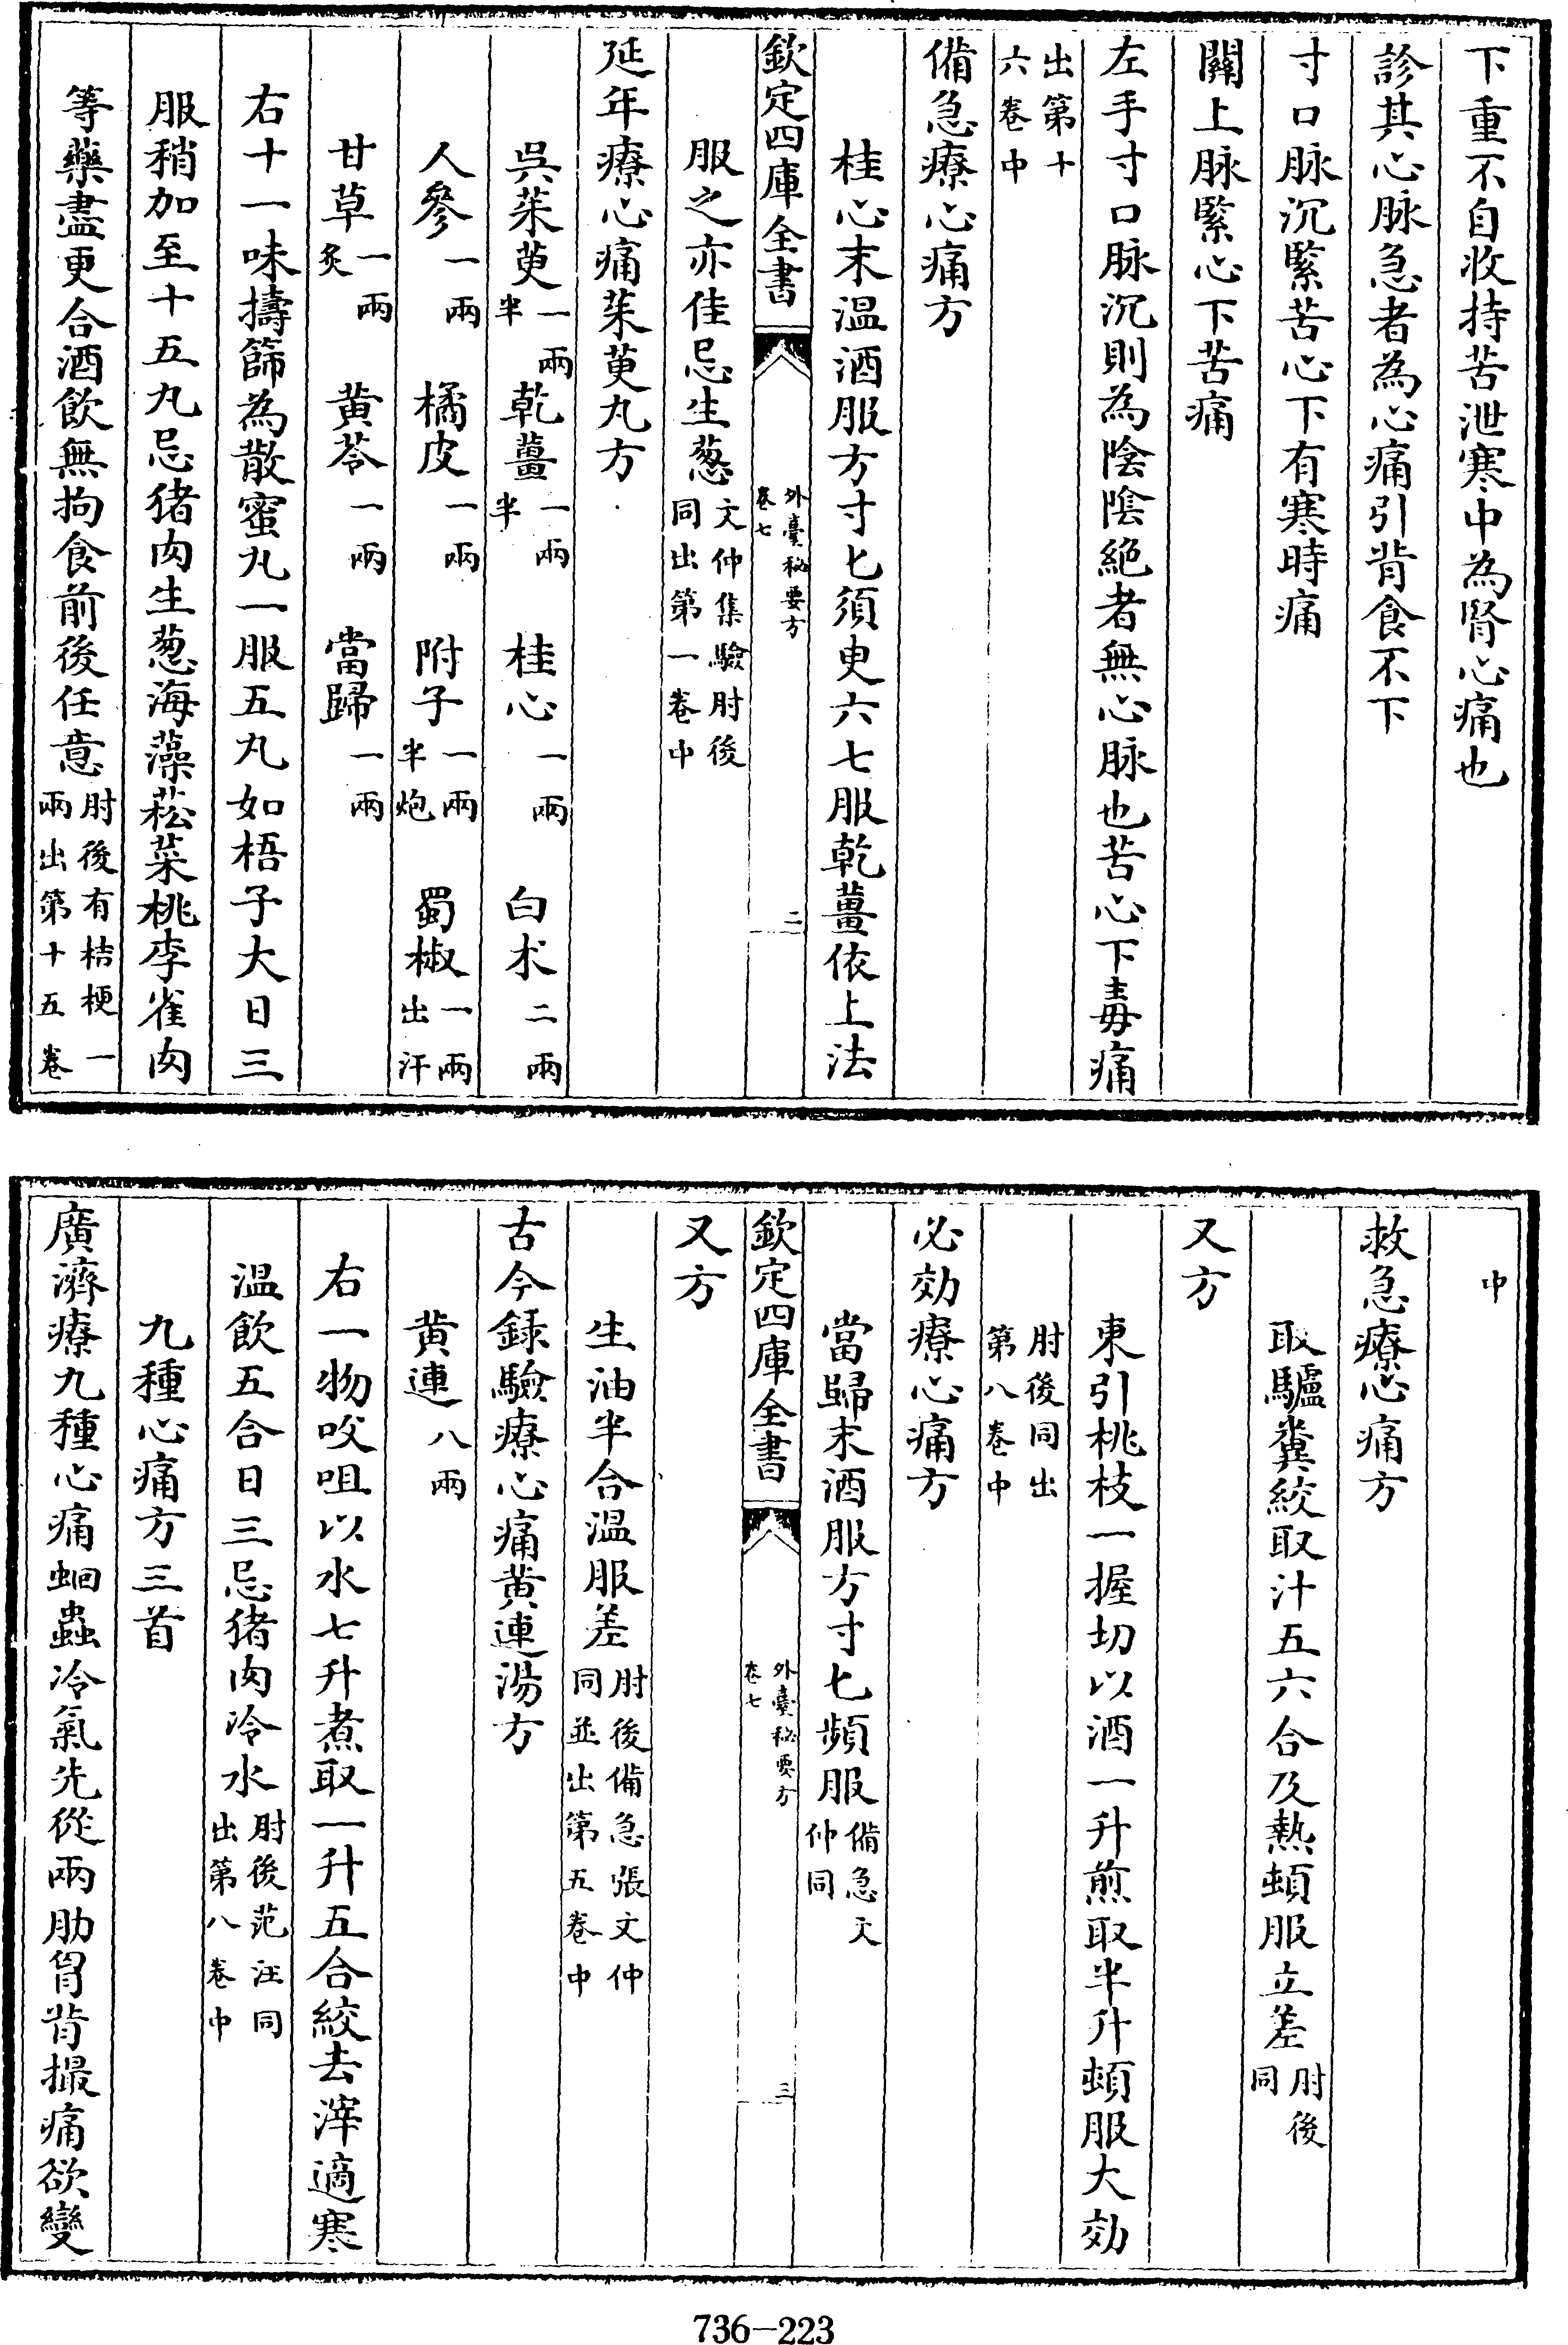 下重不自收持苦泄寒中為腎心痛也
診其心脉急者為心痛引背食不下
寸口脉沉緊苦心下有寒時痛
關上脉緊心下苦痛
左手寸口脉沉則為陰陰絕者無心脉也苦心下毒痛
出第十
六卷中
備急療心痛方
桂心末温酒服方寸匕須臾六七服乾薑依上法
欽定四庫全書
外臺秘要方
卷七
二
服之亦佳忌生葱
文仲集驗肘後
同出第一卷中
延年療心痛茱萸丸方
吳茱萸一兩半 乾薑一兩半 桂心一兩 白朮二兩
人參一兩 橘皮一兩 附子一兩半炮 蜀椒一兩出汗
甘草一兩炙 黄芩一兩 當歸一兩
右十一味擣篩為散蜜丸一服五丸如梧子大日三
服稍加至十五丸忌猪肉生葱海藻菘菜桃李雀肉
等藥盡更合酒飲無拘食前後任意
肘後有桔梗一
兩出第十五卷
中
救急療心痛方
取驢糞絞取汁五六合及熱頓服立差
肘後
同
又方
東引桃枝一握切以酒一升煎取半升頓服大効
肘後同出
第八卷中
必効療心痛方
當歸末酒服方寸匕頻服
備急文
仲同
欽定四庫全書
外臺秘要方
卷七
三
又方
生油半合温服差
肘後備急張文仲
同並出第五卷中
古今録驗療心痛黄連湯方
黄連八兩
右一物㕮咀以水七升煮取一升五合絞去滓適寒
温飲五合日三忌猪肉冷水
肘後范汪同
出第八卷中
九種心痛方三首
廣濟療九種心痛蛔蟲冷氣先從兩肋胷背撮痛欲變
736—223